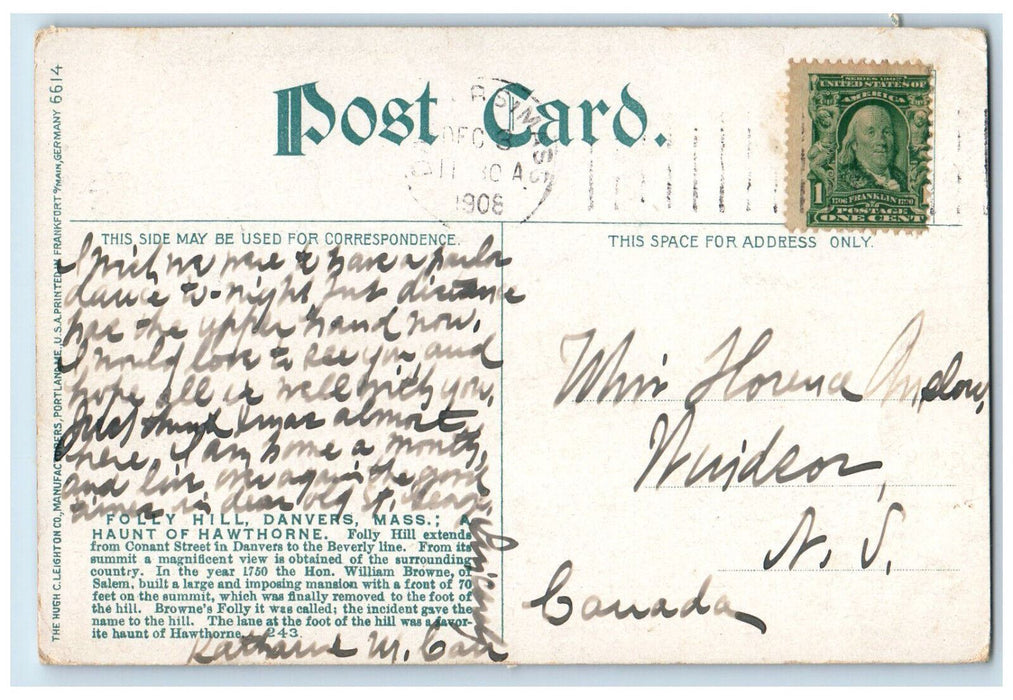 Post Card.
DEC 8
11 30 A
1908
SERIES 1902
UNITED STATES OF
AMERICA
1
1706 FRANKLIN 1790
POSTAGE
ONE CENT
THE HUGH C. LEIGHTON CO., MANUFACTURERS, PORTLAND, ME., U.S.A. PRINTED IN FRANKFORT o/MAIN, GERMANY 6614
THIS SIDE MAY BE USED FOR CORRESPONDENCE.
I wish we were to have a
dance to-night but distance
has the upper hand now.
I would love to see you and
hope all is well with you.
Just think I was almost
here, I am home a month,
and live over again the good
times in dear old St.
Sincerely
Katharine M. Carr
FOLLY HILL, DANVERS, MASS.; A
HAUNT OF HAWTHORNE. Folly Hill extends
from Conant Street in Danvers to the Beverly line. From its
summit a magnificent view is obtained of the surrounding
country. In the year 1750 the Hon. William Browne, of
Salem, built a large and imposing mansion with a front of 70
feet on the summit, which was finally removed to the foot of
the hill. Browne's Folly it was called; the incident gave the
name to the hill. The lane at the foot of the hill was a favor-
ite haunt of Hawthorne. 243
THIS SPACE FOR ADDRESS ONLY.
Miss Florence Anslow,
Windsor,
N. S.
Canada